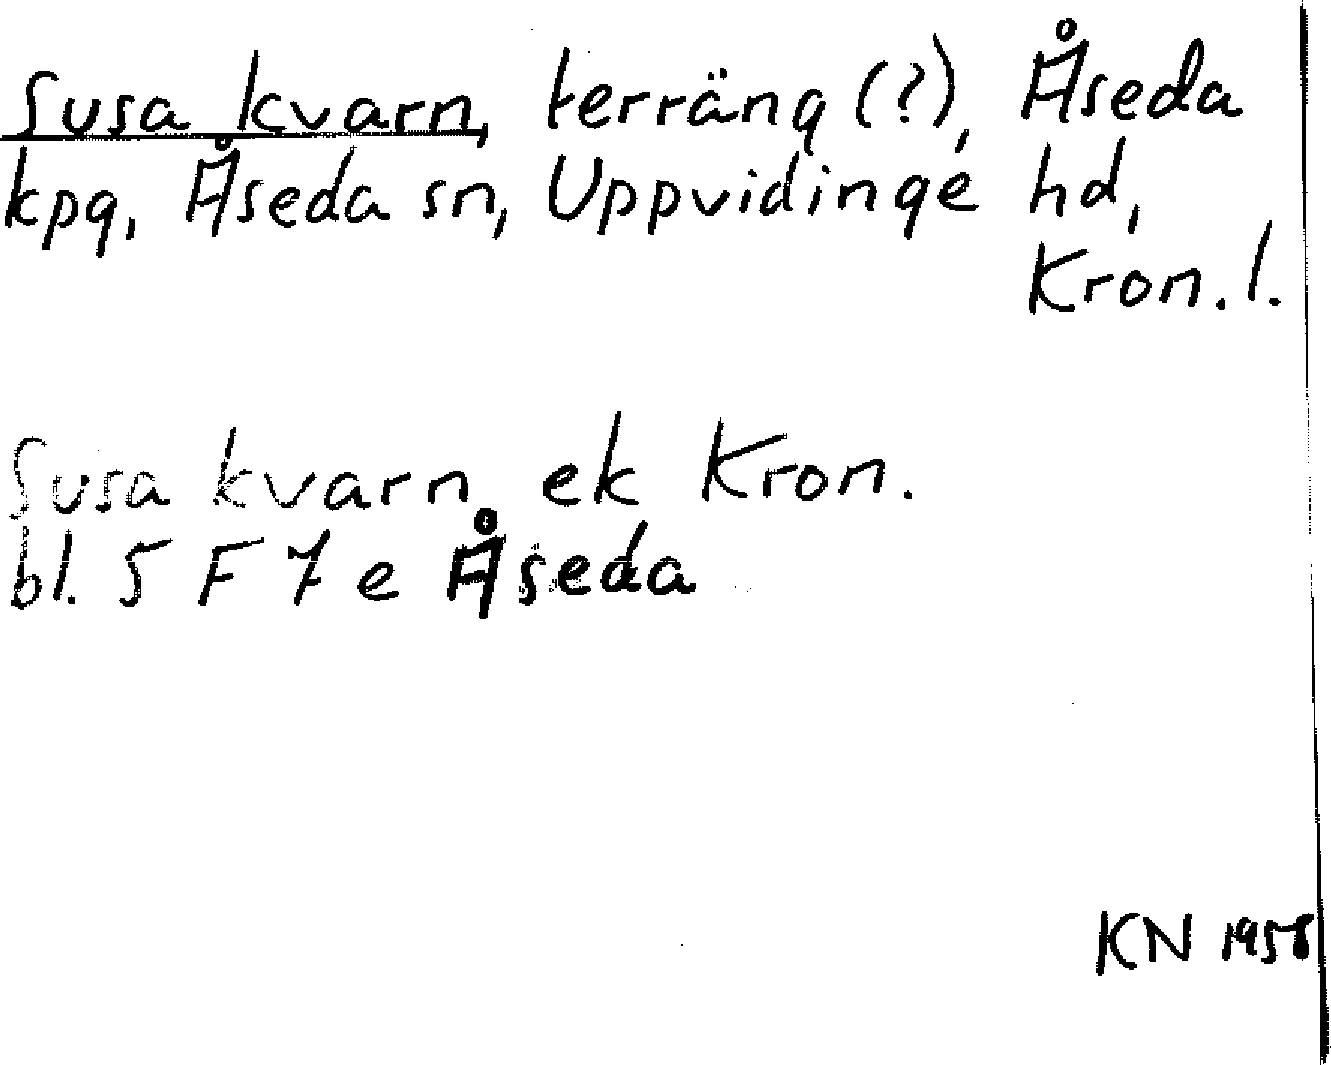 Susa kvarn, terräng (?), Åseda
kpg, Åseda sn, Uppvidinge hd,
Kron. l.
Susa kvarn ek Kron.
bl. 5 F 7 e Åseda
KN 1958